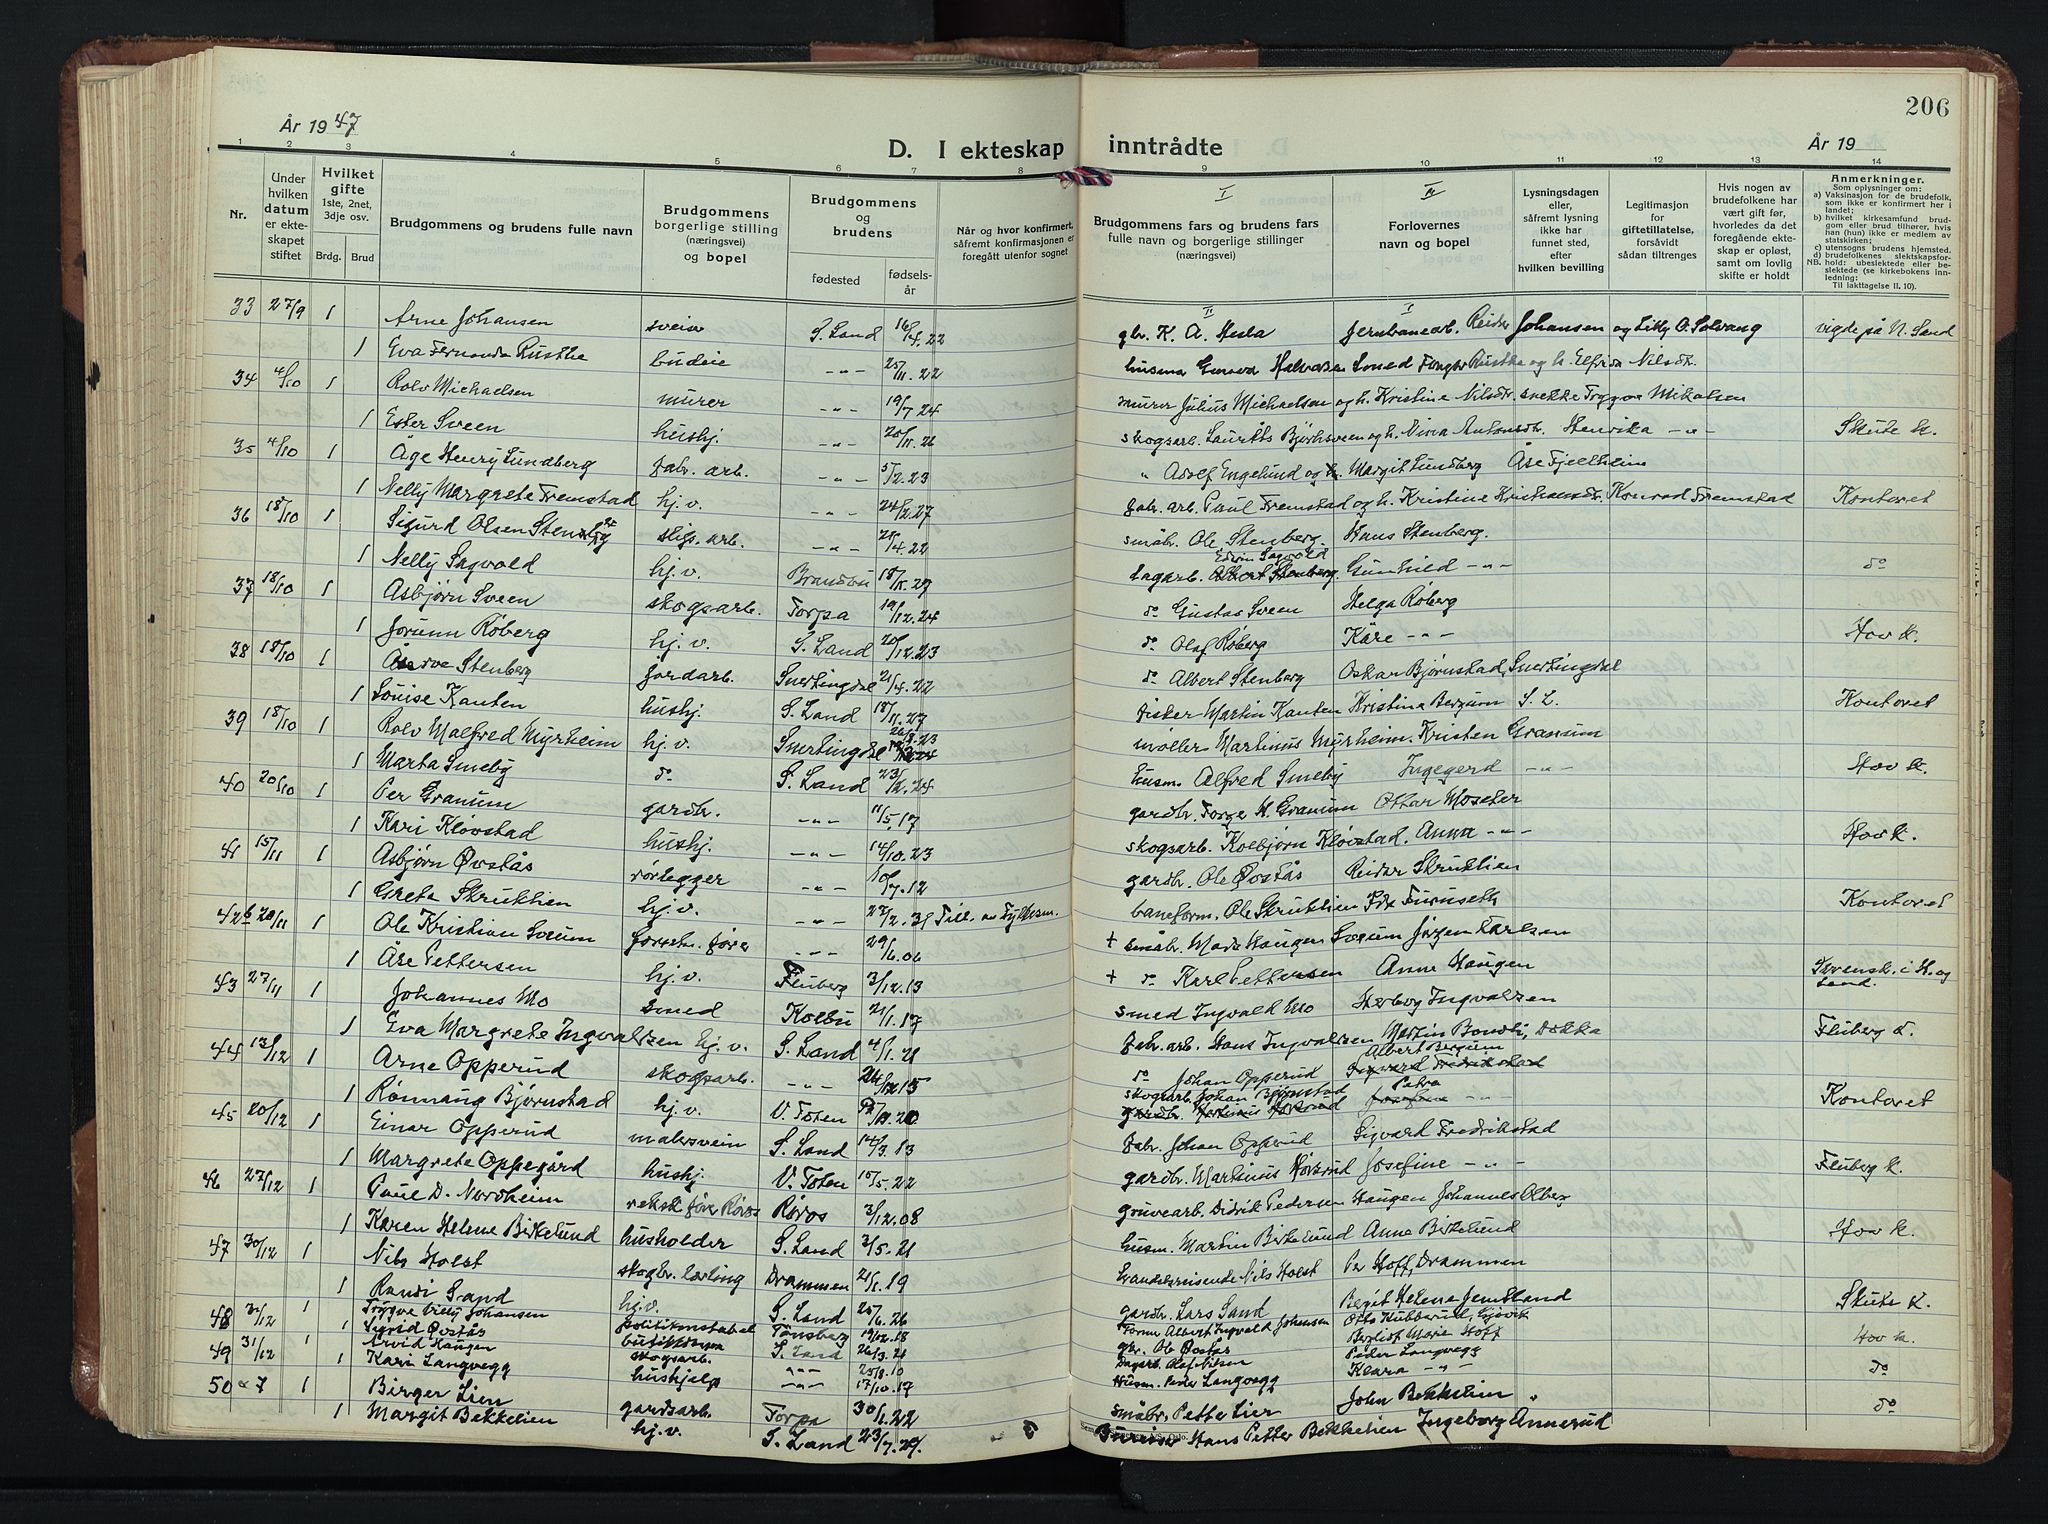 206
År 1947
D. I ekteskap inntrådte
År 19
1 2 3 4 5 6 7 8 9 10 11 12 13 14
Nr.
Under hvilken datum er ekteskapet stiftet
Hvilket gifte 1ste, 2net, 3dje osv.
Brdg. Brud
Brudgommens og brudens fulle navn
Brudgommens borgerlige stilling (næringsvei) og bopel
Brudgommens og brudens
fødested fødselsår
Når og hvor konfirmert, såfremt konfirmasjonen er foregått utenfor sognet
I
Brudgommens fars og brudens fars fulle navn og borgerlige stillinger (næringsvei)
Forlovernes navn og bopel
Lysningsdagen eller, såfremt lysning ikke har funnet sted, efter hvilken bevilling
Legitimasjon for giftetillatelse, forsåvidt sådan tiltrenges
Hvis nogen av brudefolkene har vært gift før, hvorledes da det foregående ekteskap er opløst, samt om lovlig skifte er holdt
Anmerkninger.
Som oplysninger om:
a) Vaksinasjon for de brudefolk, som ikke er konfirmert her i landet;
b) hvilket kirkesamfund brudgom eller brud tilhører, hvis han (hun) ikke er medlem av statskirken;
c) utensogns brudens hjemsted.
d) brudefolkenes slektskapsforhold: ubeslektede eller beslektede (se kirkebokens innledning:
NB.
Til iakttagelse II, 10).
33 27/9 1 Arne Johansen sveiser S. Land 16/4.22 gbr. K. A. Hesla Jernbanearb. Reidar Johansen og Lilly O. Solvang vigde på N. Land
1 Eva Fernanda Rusthe budeie -"- 25/11.22 husmn Halvorsen og h. Elfrida Nilsdt.
34 4/10 1 Rolv Michaelsen murer -"- 19/7.24 murer Julius Michaelsen og h. Kristine Nilsdt. Trygve Mikalsen
1 Ester Sveen hushj. -"- 20/11.26 skogsarb. Laurits Bjørhsveen og h. Nina Antonsdt. Henrika -"- Skute k.
35 4/10 1 Åge Henry Lundberg fabr. arb. -"- 5/12.23 " Adolf Engelund og h. Margit Lundberg Åse Fjellheim
1 Nelly Margrete Fremstad hj. v. -"- 24/2.27 fabr. arb. Paul Fremstad og h. Kristine Kristiansdt. Konrad Fremstad Kontoret
36 18/10 1 Sigurd Olsen Stenberg slip. arb. -"- 28/4.22 småbr. Ole Stenberg. Hans Stenberg.
1 Nelly Sagvold hj. v. Brandbu 18/11.27 sagarb. Edvin Sagvold Gunhild -"- do
37 18/10 1 Asbjørn Sveen skogsarb. Torpa 19/12.24 do Gustav Sveen Helga Røberg
1 Jorunn Røberg hj. v. S. Land 20/12.23 do Olaf Røberg Kåre -"- Hov k.
38 18/10 1 Arve Stenberg jordarb. Snertingdal 21/4.22 do Albert Stenberg Oskar Bjørnstad, Snertingdal
1 Louise Kanten hushj. S. Land 18/11.27 fisker Martin Kanten Kristina Bergum S. L. Kontoret
39 18/10 1 Rolv Malfred Myrheim hj. v. Snertingdal møller Martinus Myrheim. Kristen Granum
1 Marta Smeby do S. Land 23/12.24 husm. Alfred Smeby Ingegerd -"- Hov k.
40 20/10 1 Per Granum gardbr. -"- 11/5.17 gardbr. Torge H. Granum Ottar Moseter
1 Kari Kløvstad hushj. -"- 14/10.23 skogsarb. Kolbjørn Kløvstad. Anna -"- Hov k.
41 15/11 1 Asbjørn Øvstås rørlegger -"- 10/7.12 gardbr. Ole Øvstås Reidar Skruklien
1 Greta Skruklien hj. v. -"- 27/2.31 baneform. Ole Skruklien Furuseth Kontoret
42 20/11 1 Ole Kristian Sveum -"- 29/6.06 + småbr. Mads Haugen Sveum Jørgen Karlsen
1 Åse Pettersen hj. v. Fluberg 3/12.13 + do Karl Pettersen Anne Haugen
43 27/11 1 Johannes Mo smed Kolbu 21/1.17 smed Ingvald Mo Herborg Ingvalsen
1 Eva Margrete Ingvaldsen hj. v. S. Land 4/1.21 fabr. arb. Hans Ingvaldsen Martin Dokka Fluberg k.
44 13/12 1 Arne Opperud skogsarb. -"- 24/12.15 do Johan Opperud Albert Bergum
1 Rønnaug Bjørnstad hj. v. V. Toten skogsarb. Johan Bjørnstad Petra -"- Kontoret
45 20/12 1 Einar Opperud malersvein S. Land 14/3.13 fabr. Johan Opperud Sigvard Fredrikstad
1 Margrete Oppegård hushj. V. Toten 15/5.22 gardbr. Martinus Josefine -"- Fluberg k.
46 27/12 1 Paul D. Nordheim Røros Røros 3/12.08 gruvearb. Didrik Pedersen Haugen Johannes Olberg
1 Karen Helene Birkelund husholder S. Land 3/5.21 husm. Martin Birkelund Anne Birkelund Hov k.
47 30/12 1 Nils Holst skogbr. lærling Drammen 21/1.19 handelsreisende Nils Holst Per Hoff, Drammen
1 Randi Sand hj. v. S. Land 25/6.26 gardbr. Lars Sand Birgit Helene Jemtland Skute k.
48 31/12 1 Trygve Villy Johansen politikonstabel Tønsberg 19/12.18 Former Albert Ingvald Johansen Otto Hubberud, Gjøvik
1 Sigrid Øvstås S. Land 26/3.21 gbr. Ole Øvstås Bergliot Marie Hoff Hov k.
49 31/12 1 Arvid Haugen skogsarb. -"- 25/8.10 Dagarb. Olaf Nilsen Peder Langvegg
1 Kari Langvegg hushjelp -"- 17/10.17 Husm. Peder Langvegg Klara -"- do
50 1 Birger Lien gardsarb. Torpa 30/1.22 småbr. Petter Lier John Bekkelien "
1 Margit Bekkelien hj. v. S. Land 23/7.27. Hans Petter Bekkelien Ingeborg Annerud do